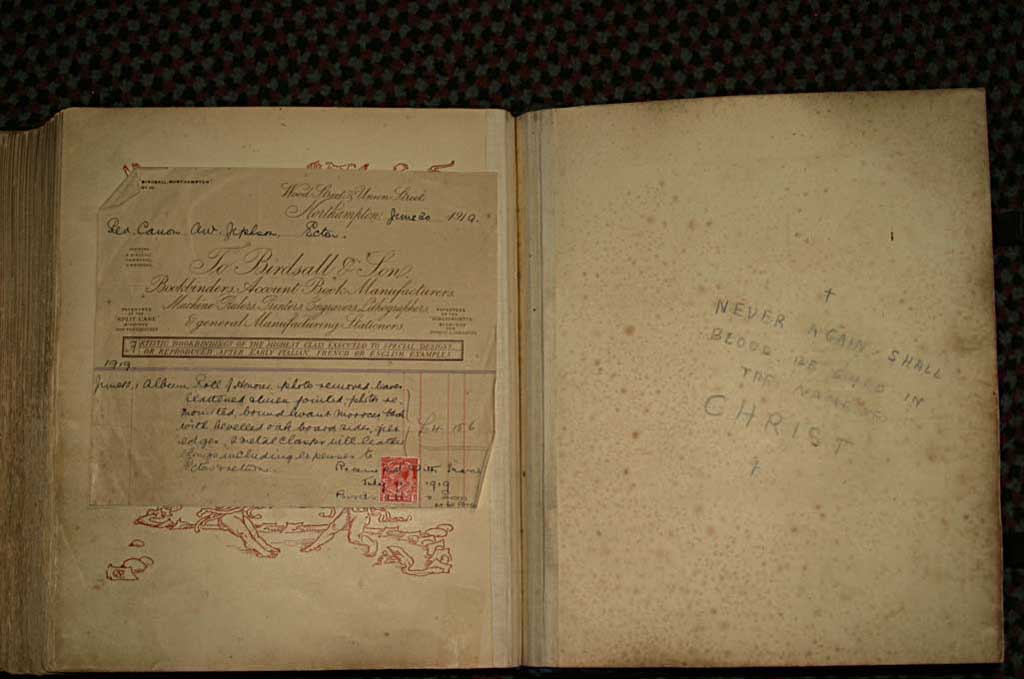 BIRDSALL, NORTHAMPTON
Wood Street & Union Street,
Northampton, June 30 1919.
Rev. Canon A.W. Jephson. Ecton.
To Birdsall & Son,
Bookbinders, Account Book Manufacturers,
Machine Rulers, Printers, Engravers, Lithographers,
& general Manufacturing Stationers.
PATENTEES
OF THE
"SPLIT CANE"
ARTISTIC BOOKBINDINGS OF THE HIGHEST CLASS EXECUTED TO SPECIAL DESIGNS,
OR REPRODUCED AFTER EARLY ITALIAN, FRENCH OR ENGLISH EXAMPLES
1919.
Album, Roll of Honour, photos removed, leaves
flattened & linen jointed, photos re-
mounted, bound Morocco back
with bevelled oak board sides,
edges, 2 metal clasps with leather
including expenses to
Ecton & return.
£4 15 6
Received With Thanks
July 1919
Birdsall & Son
NEVER AGAIN SHALL
BLOOD BE SHED IN
THE NAME OF
CHRIST